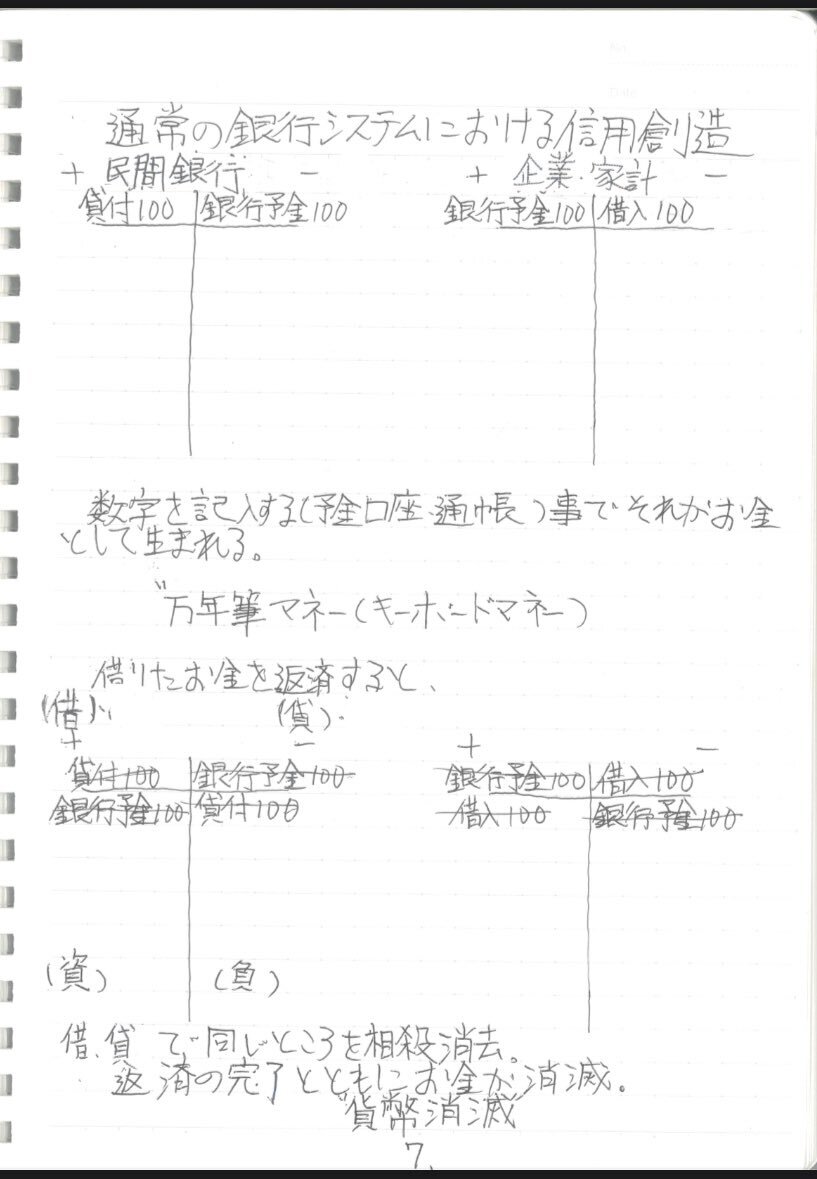 通常の銀行システムにおける信用創造
+ 民間銀行 - + 企業・家計 -
貸付100 銀行預金100 銀行予金100 借入100
数字を記入する(預金口座・通帳)事でそれがお金
として生まれる。
"万年筆マネー(キーボードマネー)
借りたお金を返済すると、
(借) (貸)
+ - + -
貸付100 銀行予金100 銀行予金100 借入100
銀行予金100 貸付100 借入100 銀行予金100
(資) (負)
借、貸 で同じところを相殺消去。
返済の完了とともにお金が消滅。
"貨幣消滅"
7.